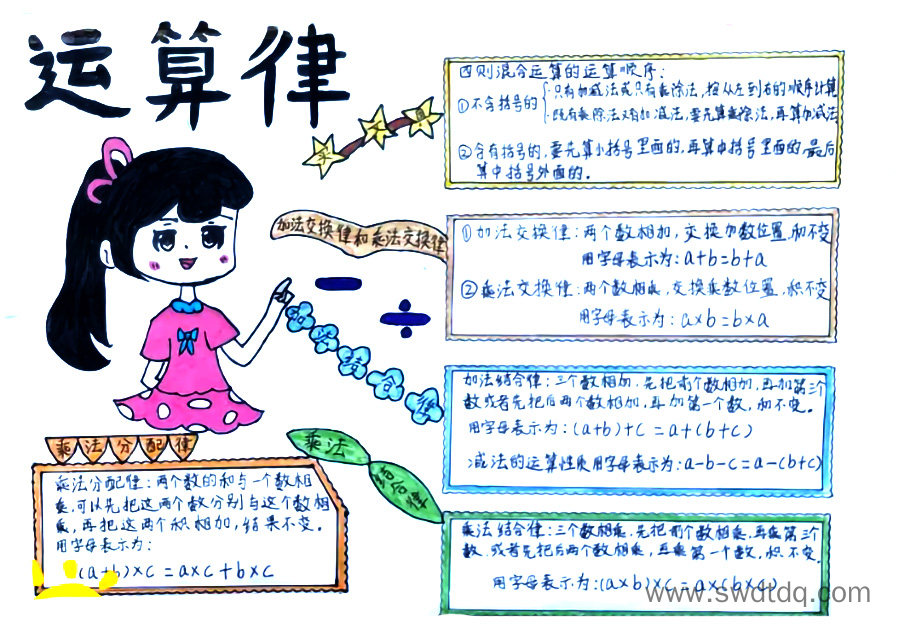 运算律
四则混合运算的运算顺序：
①不含括号的
只有加减法或只有乘除法，按从左到右的顺序计算
既有乘除法又有加减法，要先算乘除法，再算加减法
②含有括号的，要先算小括号里面的，再算中括号里面的，最后
算中括号外面的。
加法交换律和乘法交换律
①加法交换律：两个数相加，交换加数位置，和不变
用字母表示为：a+b=b+a
②乘法交换律：两个数相乘，交换乘数位置，积不变
用字母表示为：a×b=b×a
加法结合律
加法结合律：三个数相加，先把前个数相加，再加第三个
数或者先把后两个数相加，再加第一个数，和不变。
用字母表示为：(a+b)+c=a+(b+c)
减法的运算性质用字母表示为：a-b-c=a-(b+c)
乘法分配律
乘法分配律：两个数的和与一个数相
乘，可以先把这两个数分别与这个数相
乘，再把这两个积相加，结果不变。
用字母表示为：
(a+b)×c=a×c+b×c
乘法
结合律
乘法结合律：三个数相乘，先把前个数相乘，再乘第三个
数，或者先把后两个数相乘，再乘第一个数，积不变。
用字母表示为：(a×b)×c=a×(b×c)
www.swdtdq.com